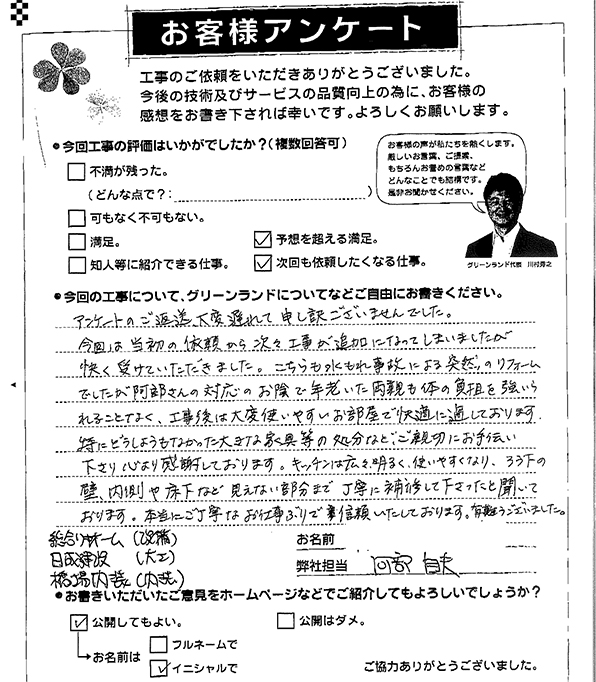 お客様アンケート
工事のご依頼をいただきありがとうございました。
今後の技術及びサービスの品質向上の為に、お客様の
感想をお書き下されば幸いです。よろしくお願いします。
●今回工事の評価はいかがでしたか?(複数回答可)
不満が残った。
(どんな点で?: )
可もなく不可もない。
満足。
予想を超える満足。
知人等に紹介できる仕事。
次回も依頼したくなる仕事。
お客様の声が私たちを熱くします。
厳しいお言葉、ご提案、
もちろんお褒めの言葉など
どんなことでも結構です。
是非お聞かせください。
グリーンランド代表 川村
●今回の工事について、グリーンランドについてなどご自由にお書きください。
アンケートのご返送、大変遅れて申し訳ございませんでした。
今回は当初の依頼から次々工事が追加になってしまいましたが
快く受けていただきました。こちらも水もれ事故による突然のリフォーム
でしたが阿部さんの対応のお陰で年老いた両親も体の負担を強いら
れることなく、工事後は大変使いやすいお部屋で快適に過しております。
特にどうしようもなかった大きな家具等の処分などご親切にお手伝い
下さり心より感謝しております。キッチンは広々、明るく、使いやすくなり、ろう下の
壁、内側や床下など見えない部分まで丁寧に補修して下さったと聞いて
おります。本当にご丁寧なお仕事ぶりで信頼いたしております。有難うございました。
総合リホーム
(大工)
内装(内装)
お名前
弊社担当 阿部
●お書きいただいたご意見をホームページなどでご紹介してもよろしいでしょうか?
公開してもよい。
公開はダメ。
お名前は
フルネームで
イニシャルで
ご協力ありがとうございました。